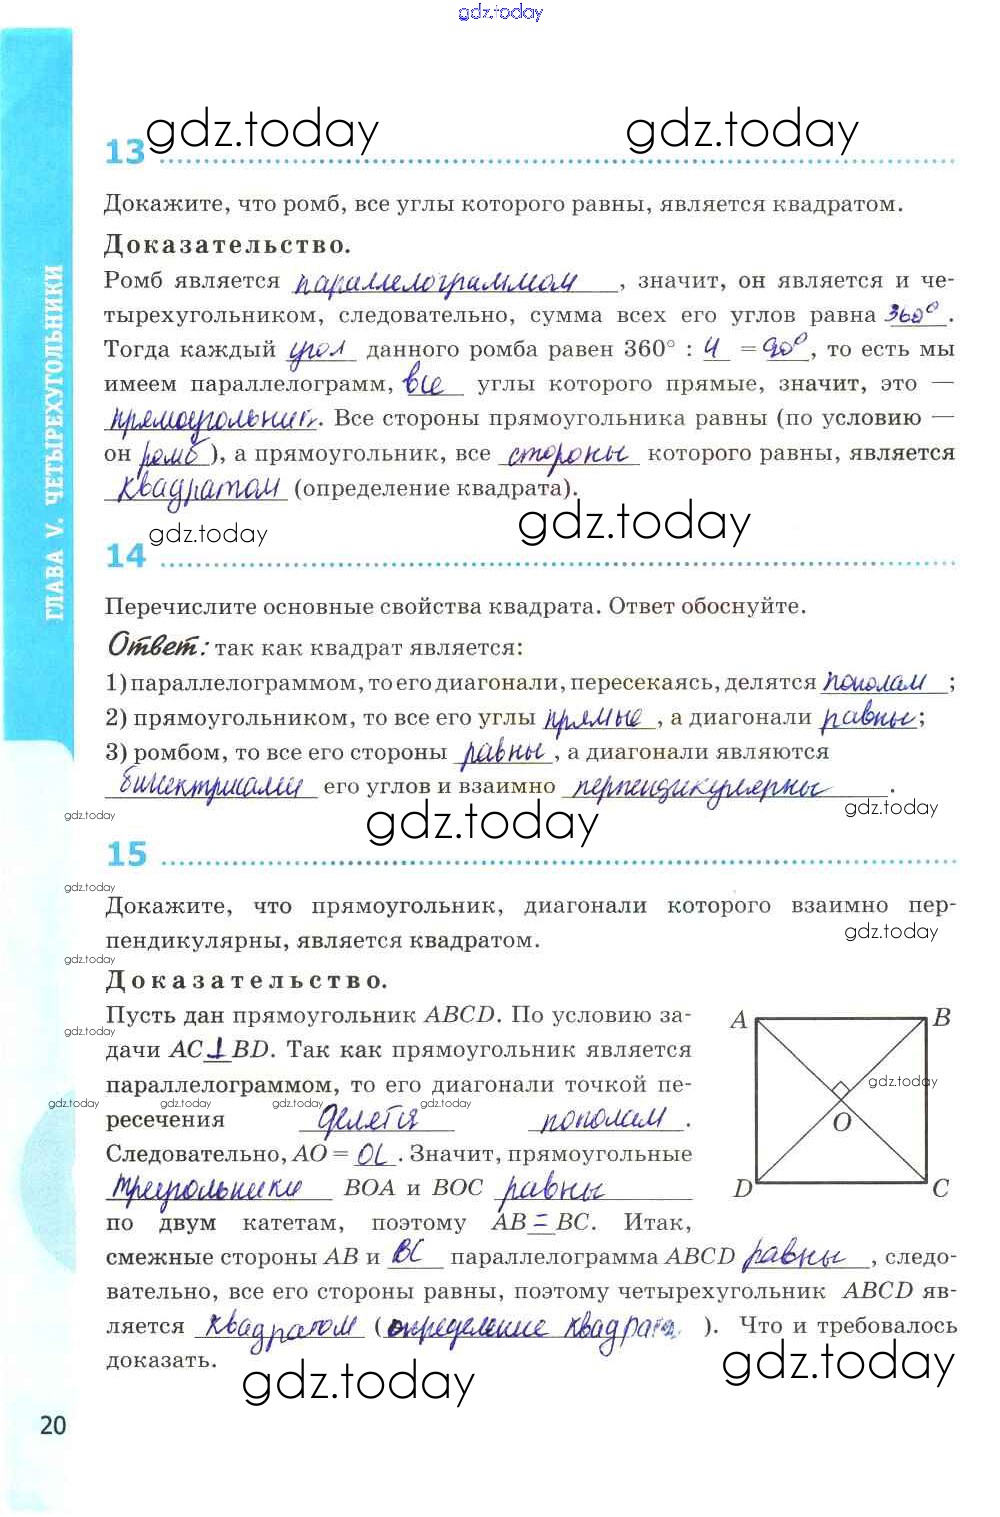 gdz.today
gdz.today gdz.today
13
Докажите, что ромб, все углы которого равны, является квадратом.
Доказательство.
Ромб является параллелограммом, значит, он является и че-
тырехугольником, следовательно, сумма всех его углов равна 360°.
Тогда каждый угол данного ромба равен 360° : 4 = 90°, то есть мы
имеем параллелограмм, все углы которого прямые, значит, это —
прямоугольник. Все стороны прямоугольника равны (по условию —
он ромб), а прямоугольник, все стороны которого равны, является
квадратом (определение квадрата).
gdz.today gdz.today
14
Перечислите основные свойства квадрата. Ответ обоснуйте.
Ответ: так как квадрат является:
1) параллелограммом, то его диагонали, пересекаясь, делятся пополам;
2) прямоугольником, то все его углы прямые, а диагонали равны;
3) ромбом, то все его стороны равны, а диагонали являются
биссектрисами его углов и взаимно перпендикулярны.
gdz.today gdz.today gdz.today
15
gdz.today
Докажите, что прямоугольник, диагонали которого взаимно пер-
пендикулярны, является квадратом.
gdz.today gdz.today
Доказательство.
Пусть дан прямоугольник ABCD. По условию за-
gdz.today
дачи AC ⊥ BD. Так как прямоугольник является
параллелограммом, то его диагонали точкой пе-
gdz.today gdz.today gdz.today gdz.today gdz.today
ресечения делятся пополам.
Следовательно, AO = OC. Значит, прямоугольные
треугольники BOA и BOC равны
по двум катетам, поэтому AB = BC. Итак,
A B
O
D C
смежные стороны AB и BC параллелограмма ABCD равны, следо-
вательно, все его стороны равны, поэтому четырехугольник ABCD яв-
ляется квадратом (определение квадрата). Что и требовалось
доказать.
gdz.today gdz.today
20
ГЛАВА V. ЧЕТЫРЕХУГОЛЬНИКИ